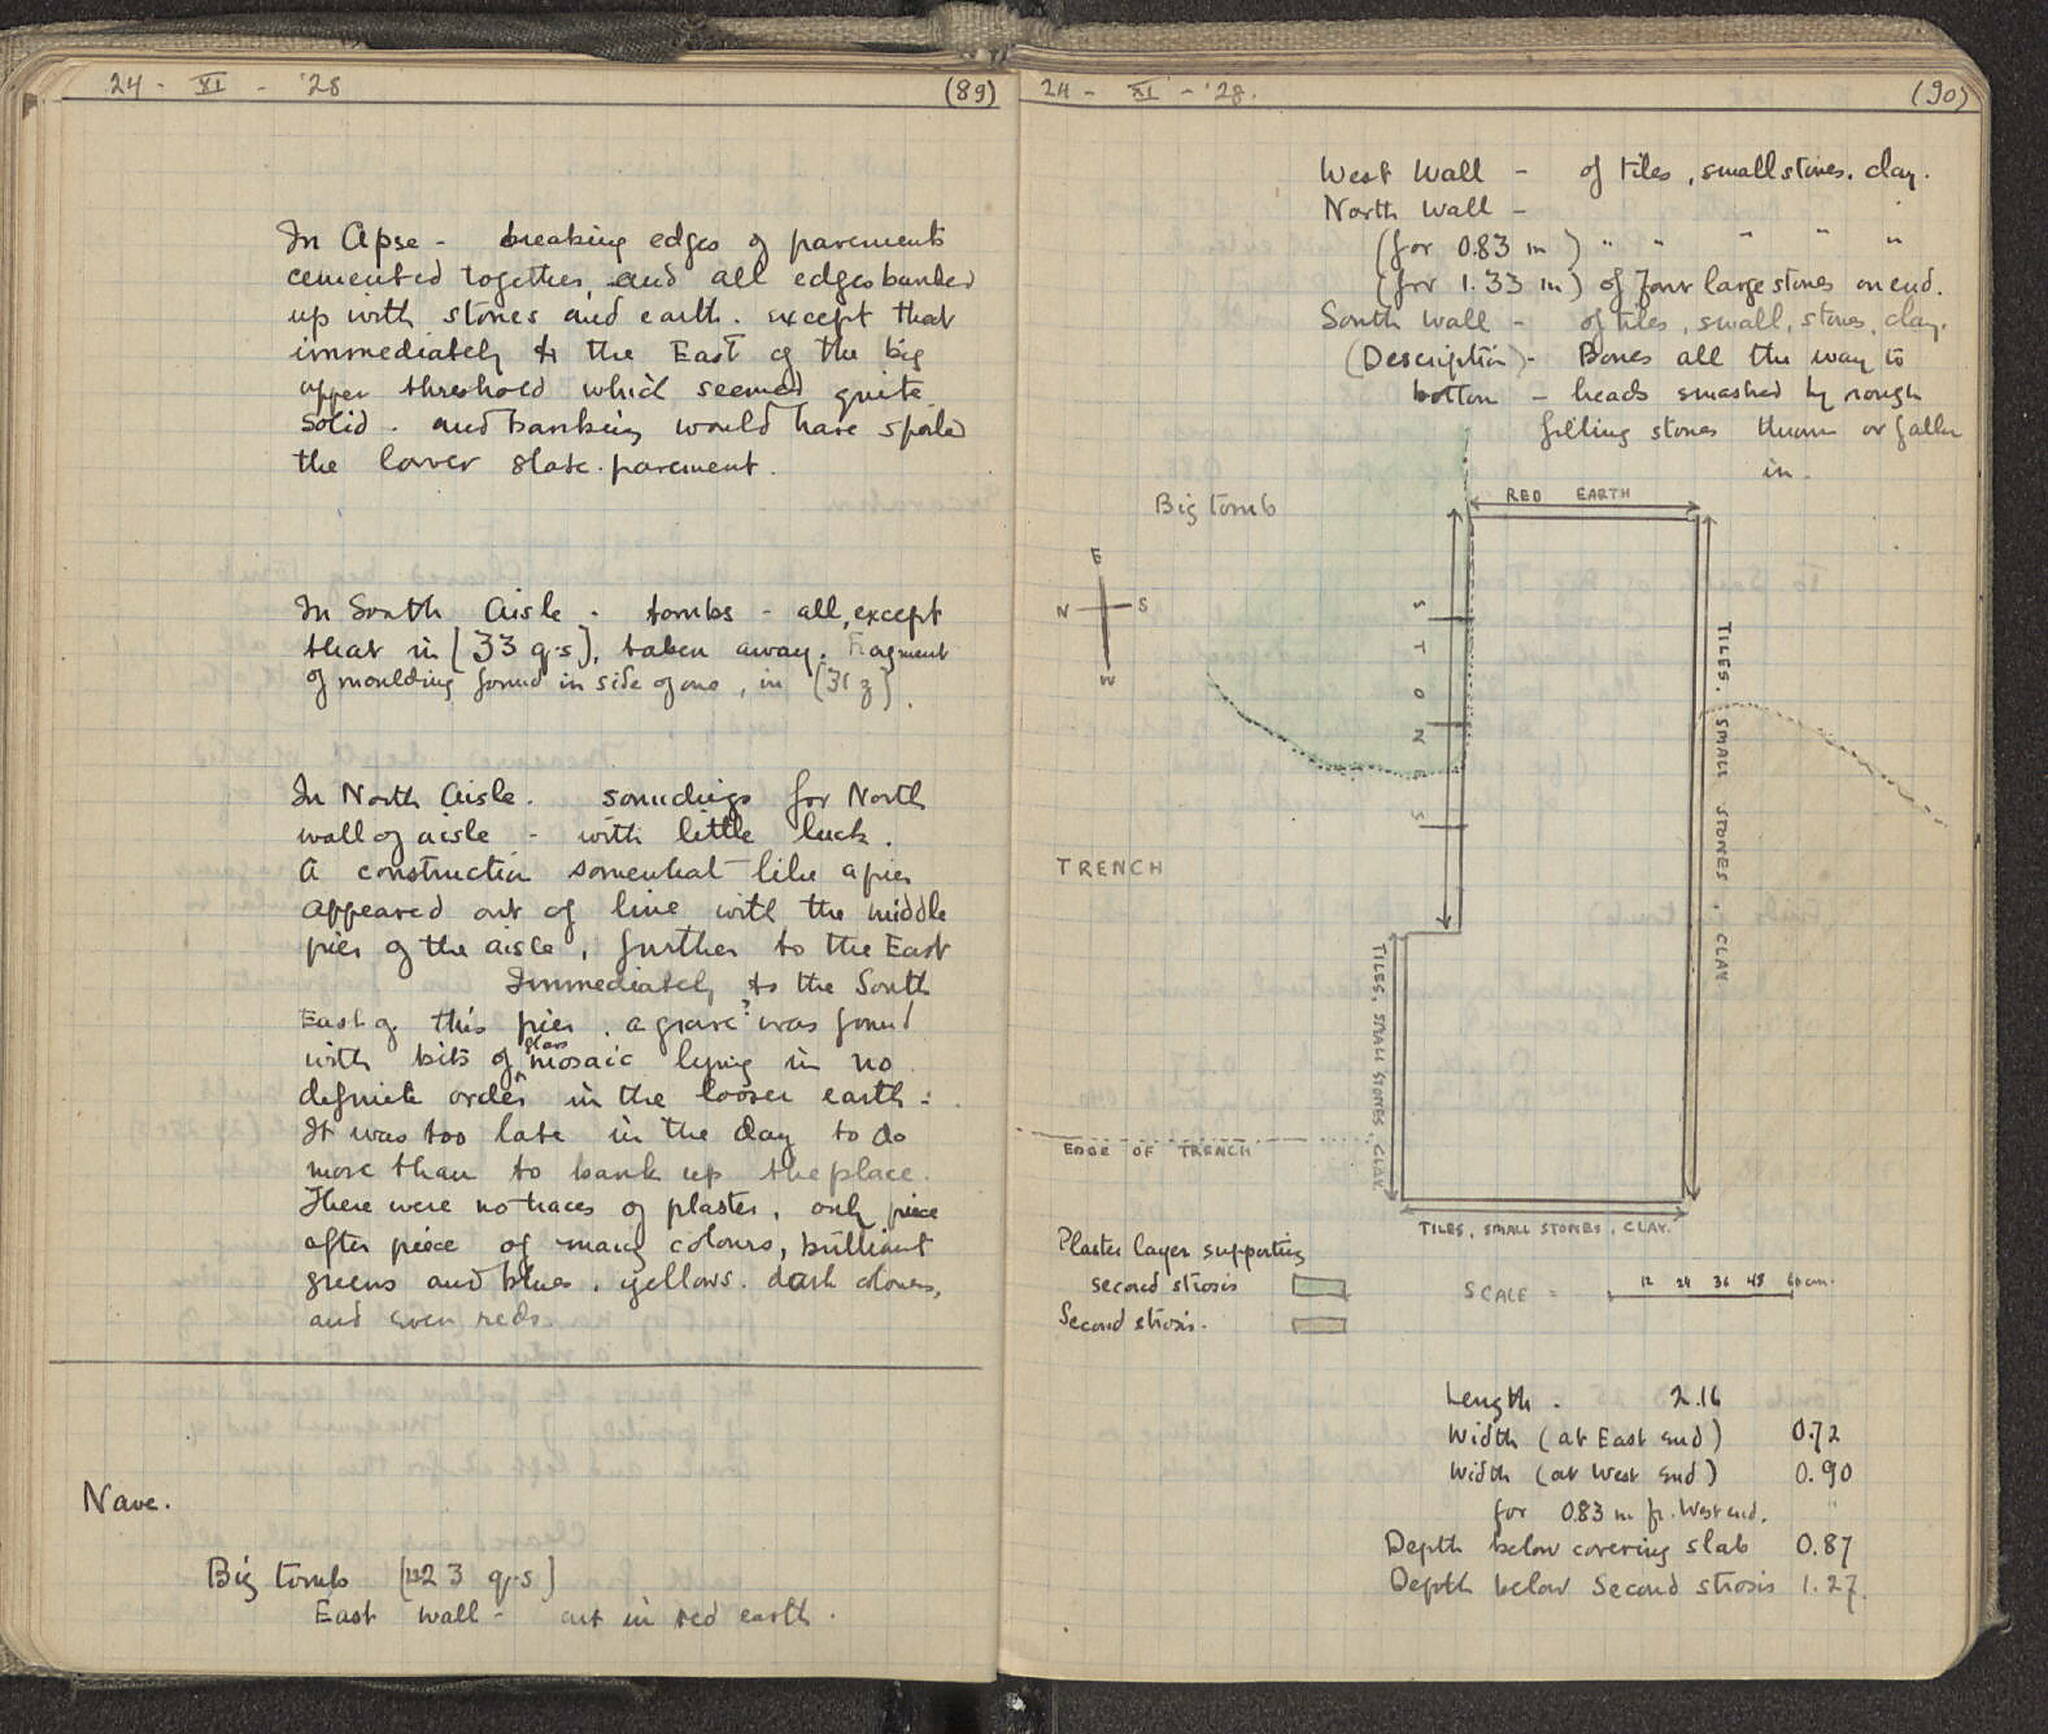 24 - XI - '28 (89)
In Apse - breaking edges of pavements
cemented together, and all edges banked
up with stones and earth. except that
immediately to the East of the big
upper threshold which seemed quite
solid. and banking would have spoiled
the lower slate pavement.
In South Aisle - tombs - all, except
that in [33 q-s], taken away. Fragment
of moulding found in side of one, in [31 z].
In North Aisle. soundings for North
wall of aisle - with little luck.
A construction somewhat like a pier
appeared out of line with the middle
pier of the aisle, further to the East
Immediately to the South
East of this pier, a grave? was found
with bits of glass mosaic lying in no
definite order in the looser earth:
It was too late in the day to do
more than to bank up the place.
There were no traces of plaster, only piece
after piece of many colours, brilliant
greens and blues, yellows. dark colours,
and even reds.
Nave.
Big tomb [23 q-s]
East wall - cut in red earth.
24 - XI - '28. (90)
West Wall - of tiles, small stones. clay.
North Wall -
(for 0.83 m) " " " " "
(for 1.33 m) of four large stones on end.
South Wall - of tiles, small, stones, clay.
(Description) - Bones all the way to
bottom - heads smashed by rough
filling stones thrown or fallen
in.
Big tomb
RED EARTH
E
N S
W
STONES
TILES. SMALL STONES. CLAY
TRENCH
TILES, SMALL STONES, CLAY
EDGE OF TRENCH
TILES, SMALL STONES, CLAY.
Plaster layer supporting
second strosis
Second strosis.
SCALE = 12 24 36 48 60 cm.
Length. 2.16
Width (at East end) 0.72
Width (at West end) 0.90
for 0.83 m fr. West end. "
Depth below covering slab 0.87
Depth below Second strosis 1.27.